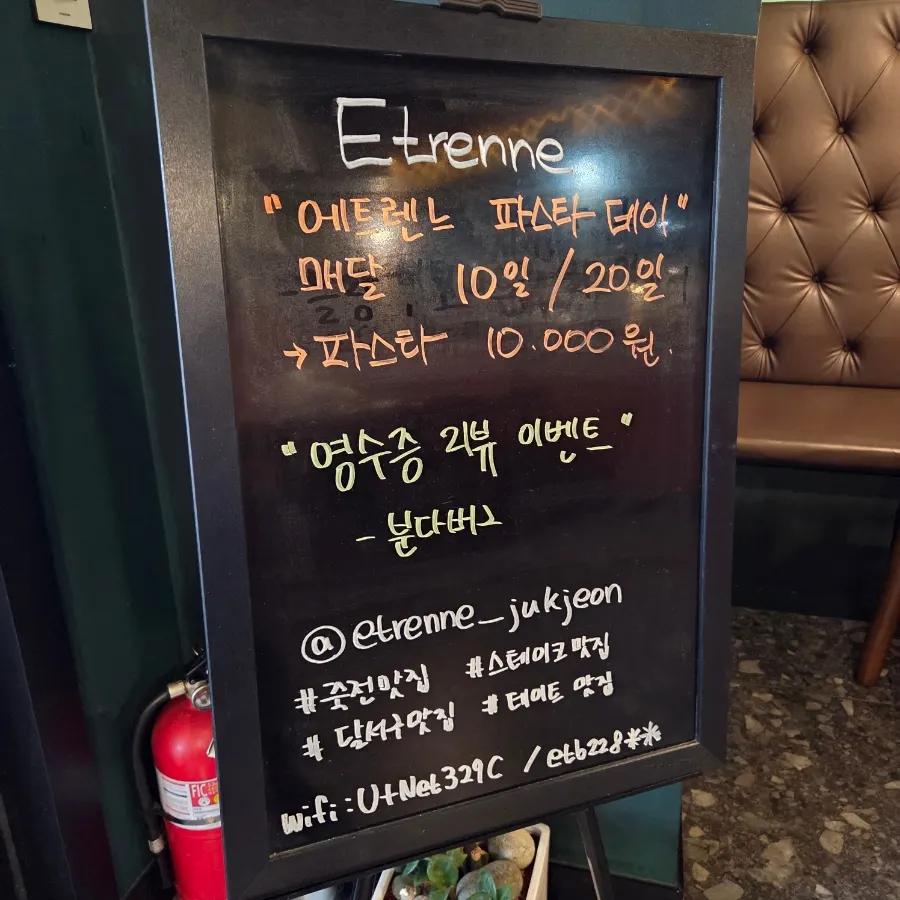 Etrenne
"에트렌느 파스타 데이"
매달 10일 / 20일
→파스타 10.000원.
"영수증 리뷰 이벤트"
- 분다버그
@etrenne_jukjeon
#죽전맛집 #스테이크맛집
# 달서구맛집 # 데이트 맛집
wifi : U+Net329C / etb228**
FIC